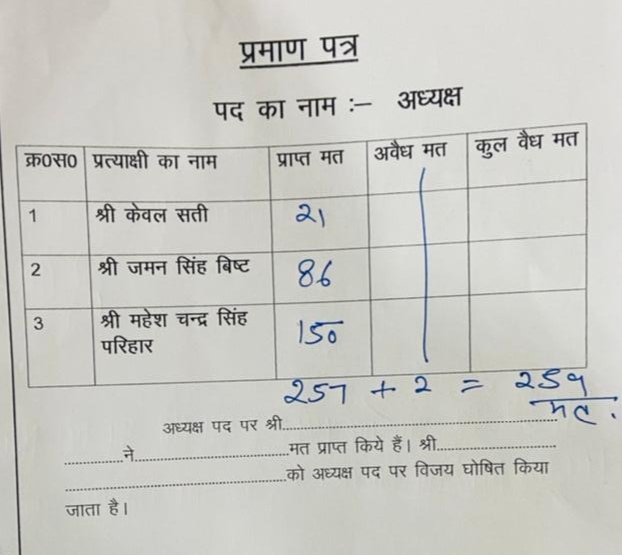 प्रमाण पत्र
पद का नाम :– अध्यक्ष
क्र०स० प्रत्याक्षी का नाम प्राप्त मत अवैध मत कुल वैध मत
1 श्री केवल सती 21
2 श्री जमन सिंह बिष्ट 86
3 श्री महेश चन्द्र सिंह 150
परिहार
257 + 2 = 259
मत.
अध्यक्ष पद पर श्री..............................
..............ने..............................मत प्राप्त किये हैं। श्री..............................
..............................को अध्यक्ष पद पर विजय घोषित किया
जाता है।